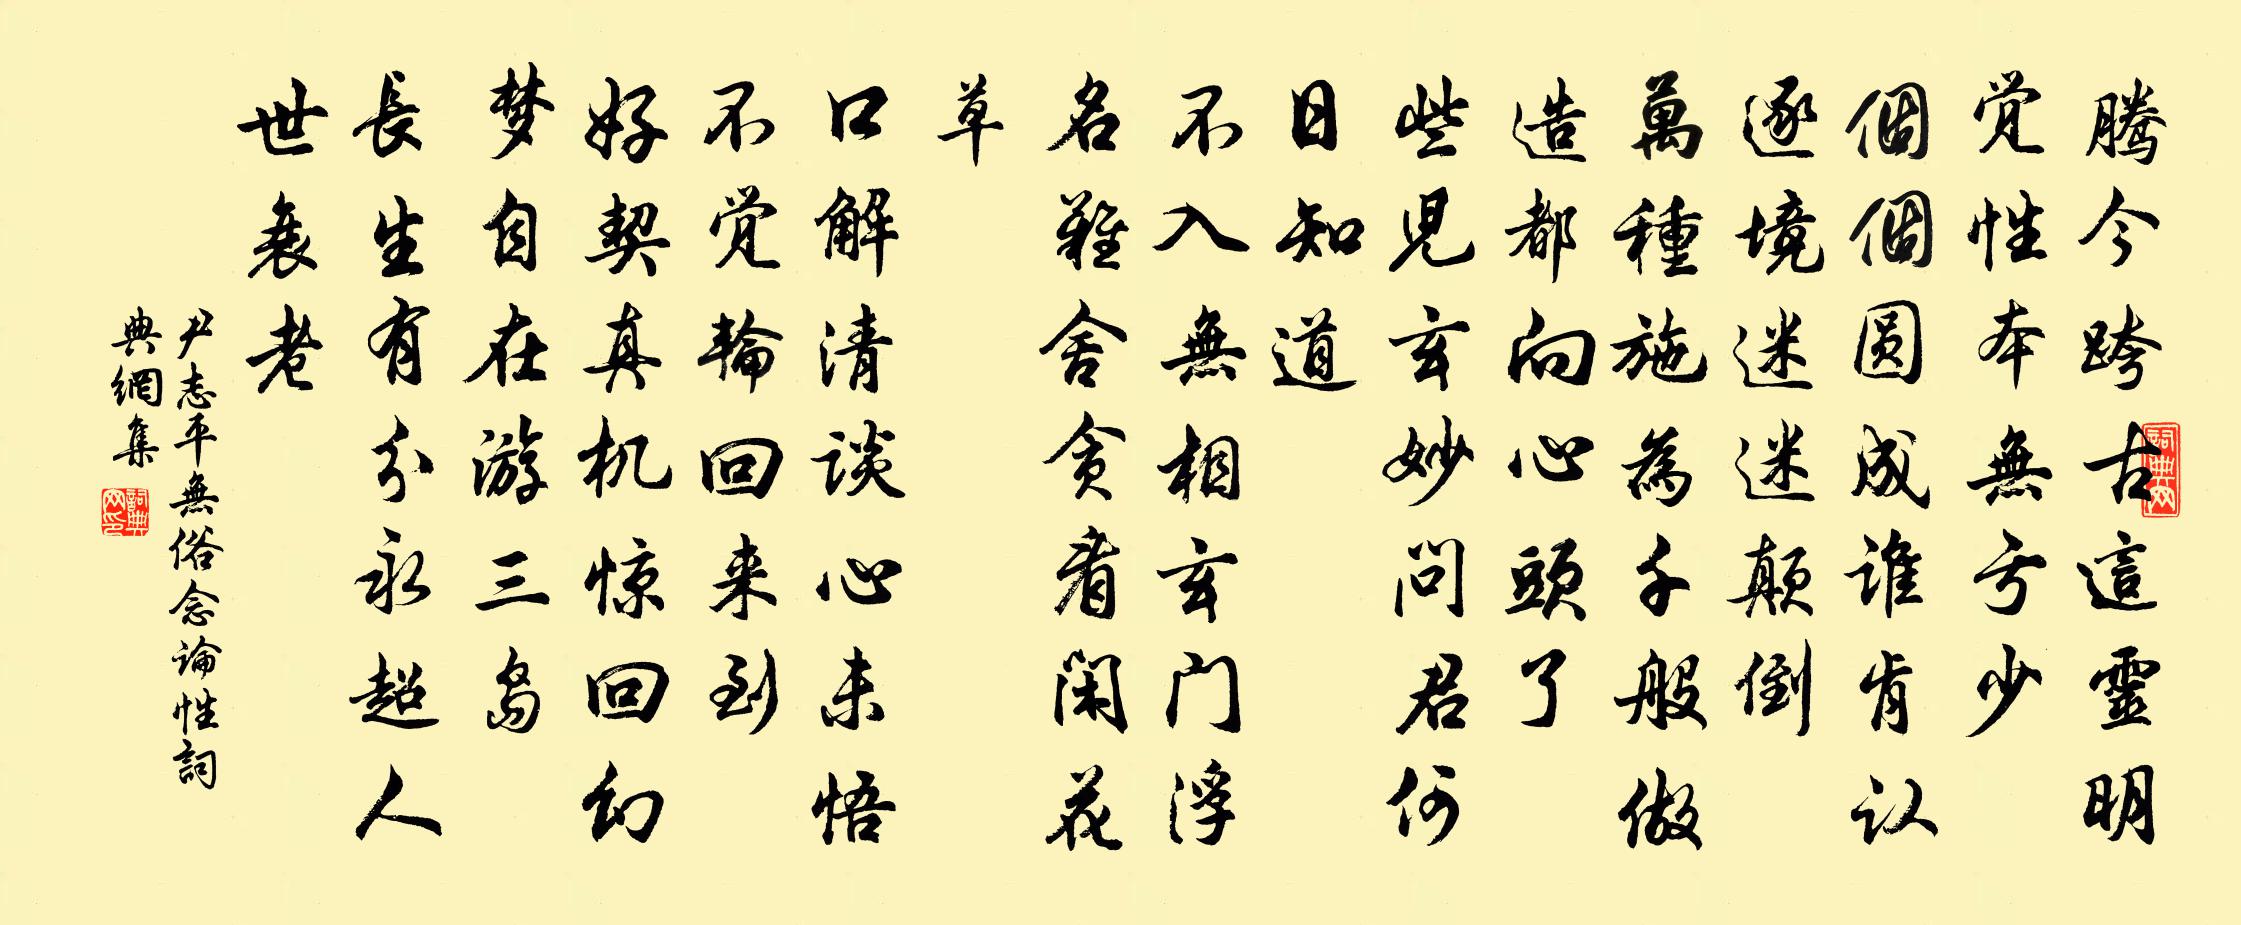 腾今跨古這靈明
觉性本無亏少
個個圆成谁肯认
逐境迷迷颠倒
萬種施為千般做
造都向心頭了
些児玄妙问君何
日知道
不入無相玄门浮
名难舍贪看闲花
草
口解清谈心未悟
不觉輪回来到
好契真机惊回幻
梦自在游三岛
長生有分永超人
世衰老
尹志平無俗念論性詞
典網集
詞典网
詞典网印